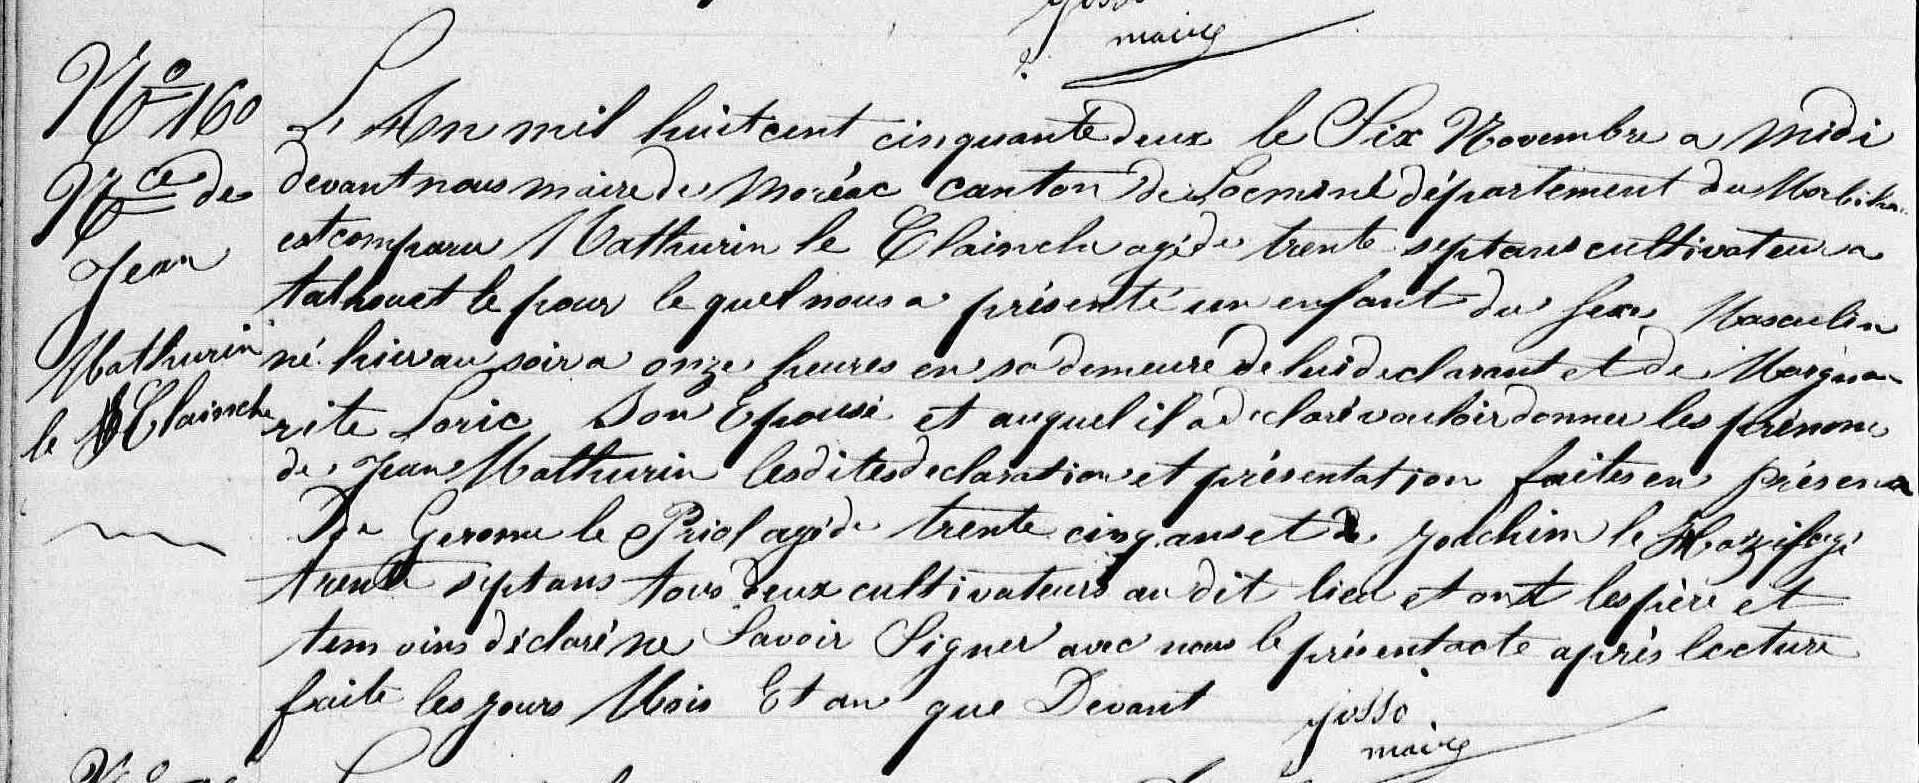 Josso
maire
N° 160
Nce de
Jean
Mathurin
le Clainche
L'An mil huit cent cinquante deux le Six Novembre a midi
devant nous maire de moréac canton de Locminé département du Morbihan
est comparu Mathurin le Clainche agé de trente sept ans cultivateur a
talhouet le pour le quel nous a présenté un enfant du sexe Masculin
né hier au soir a onze heures en sa demeure de lui declarant et de Margue
rite Loric Son Epouse et auquel il a declaré vouloir donner les prénoms
de Jean Mathurin lesdites declaration et présentation faites en présence
De Gerome le Priol agé de trente cinq ans et de Joachim le agé
trente sept ans tous deux cultivateurs au dit lieu et ont les père et
temoins déclaré ne Savoir Signer avec nous le présent acte après lecture
faite les jours Mois Et an que Devant
Josso
maire